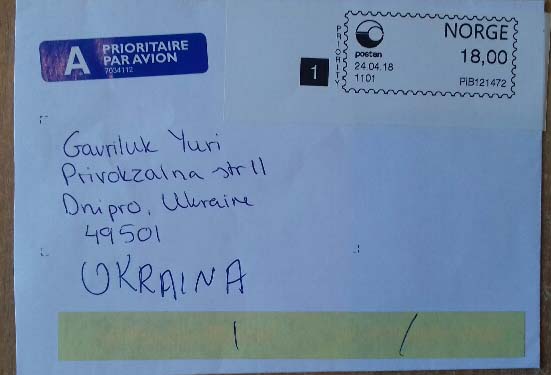 A PRIORITAIRE
PAR AVION
7034112
PRIORITY
1
posten
24.04.18
1101
NORGE
18,00
PIB121472
Gavriluk Yuri
Privokzalna str 11
Dnipro, Ukraine
49501
UKRAINA